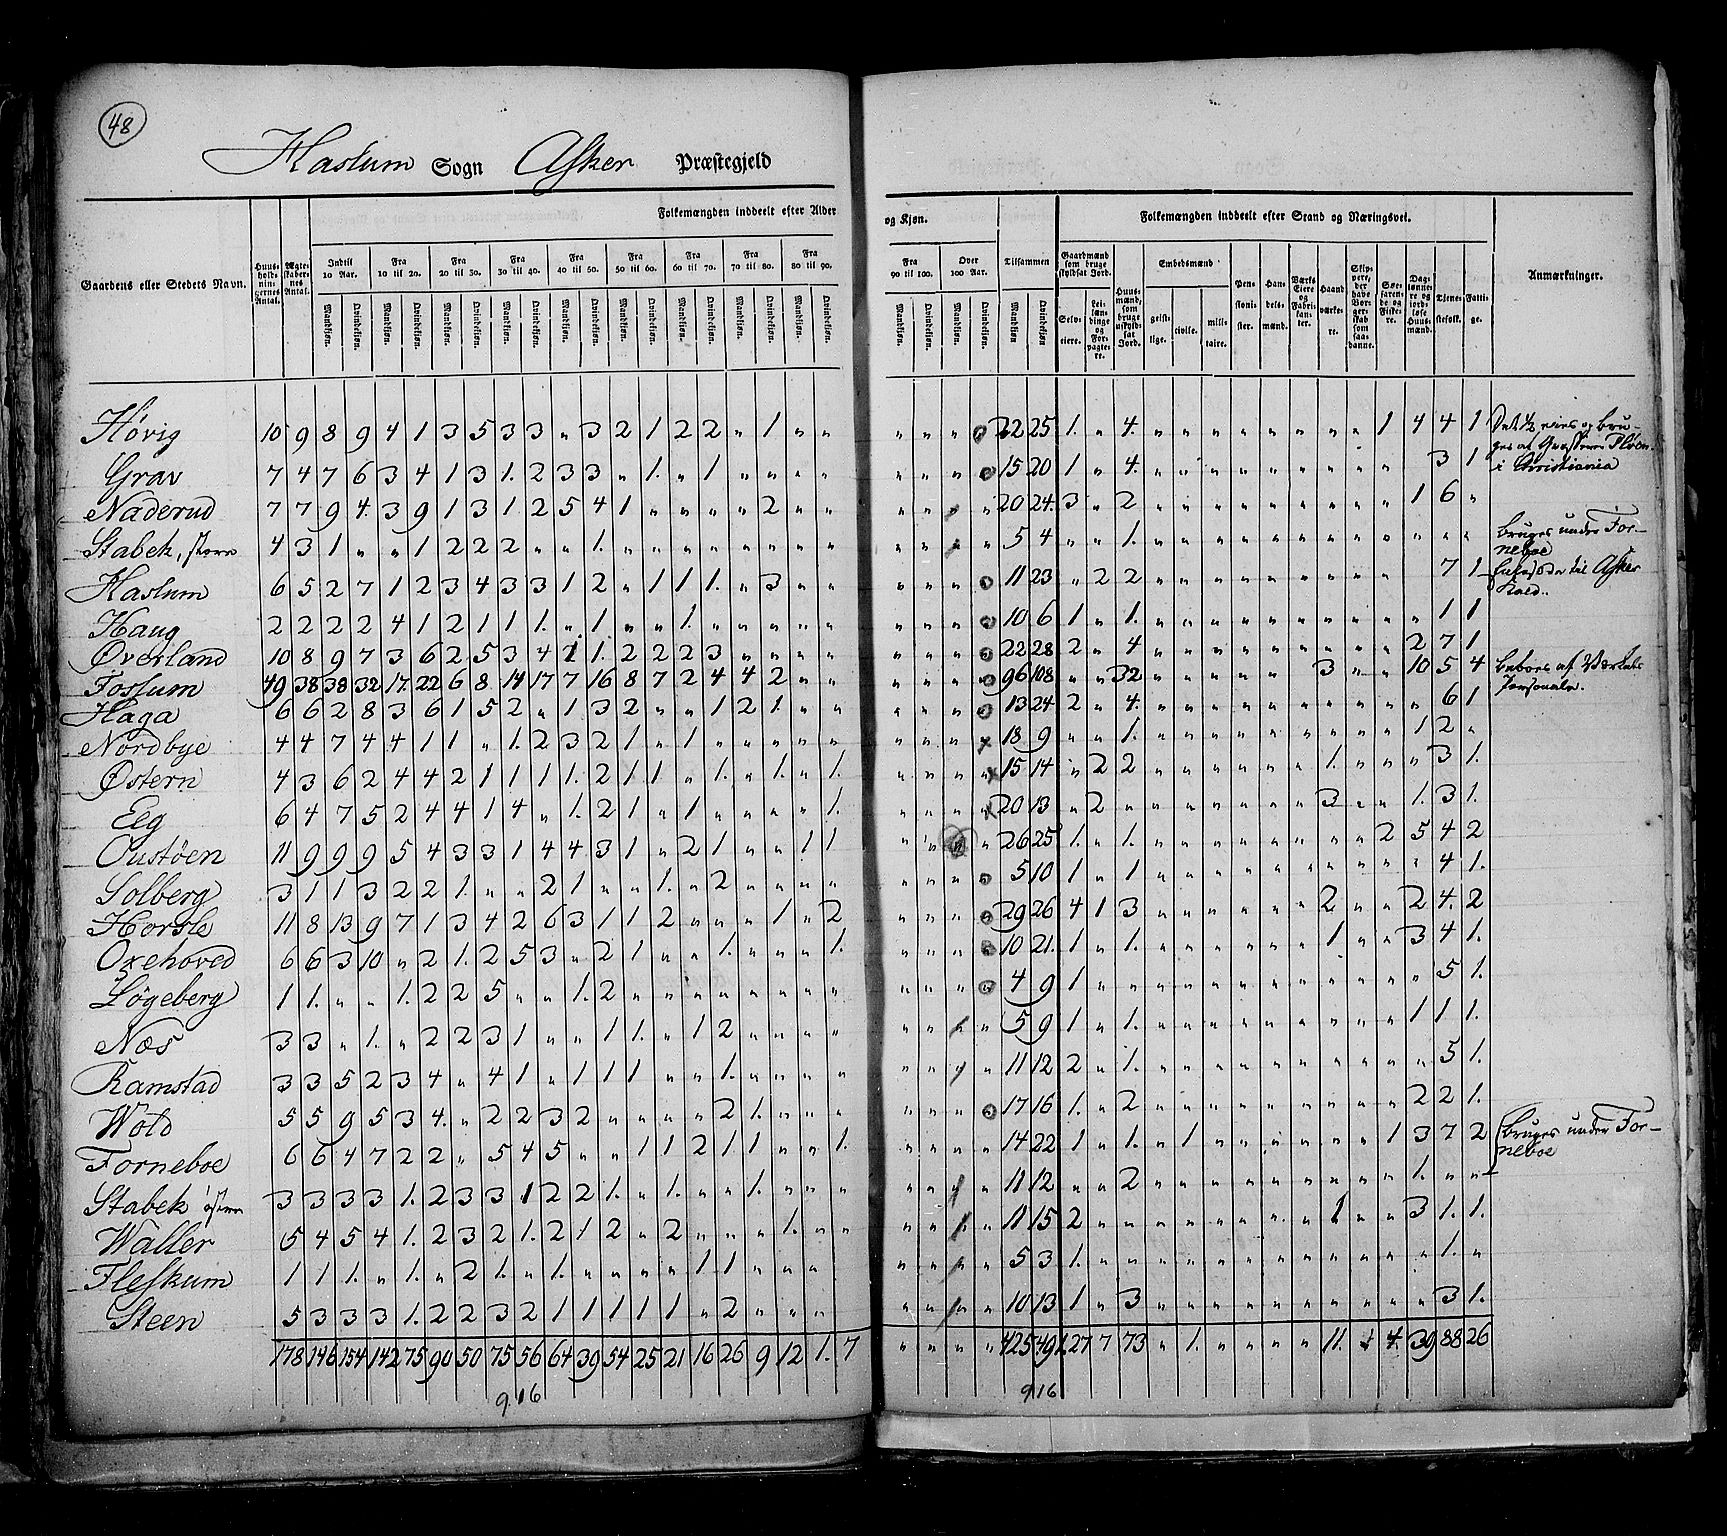 48
Haslum Sogn Asker Præstegjeld
Gaardens eller Stedets Navn.
Huusholdningernes Antal.
Ægteskabernes Antal.
Folkemængden inddeelt efter Alder og Kjøn.
Indtil 10 Aar. Fra 10 til 20. Fra 20 til 30. Fra 30 til 40. Fra 40 til 50. Fra 50 til 60. Fra 60 til 70. Fra 70 til 80. Fra 80 til 90. Fra 90 til 100. Over 100 Aar. Tilsammen
Mandkjøn. Qvindekjøn.
Folkemængden inddeelt efter Stand og Næringsvei.
Gaardmænd som bruge skyldsat Jord.
Selveiere. Leilændinge og Forpagtere.
Huusmænd, som bruge uskyldsat Jord.
Embedsmænd
geistlige. civile. militaire.
Pensionister. Handelsmænd. Værks Eiere og Fabrikanter. Haandværkere. Skippere, der have Borgerskab som saadanne. Søefarende og Fiskere. Dagslønnere og jordløse Huusmænd. Tjenestefolk. Fattige.
Anmærkninger.
Høvig 10 9 8 9 4 1 3 5 3 3 „ 3 2 1 2 2 „ 1 „ „ „ „ „ „ 22 25 1. „ 4. „ „ „ „ „ „ „ „ 1 4 4 1 Det ½ eies og bruges af
Grav 7 4 7 6 3 4 1 3 1. 2 3 3 „ 1. „ 1 „ „ „ „ „ „ „ „ 15 20 1 „ 4. „ „ „ „ „ „ „ „ „ „ 3 1 i Christiania
Naderud 7 7 9 4. 3 9 1 3 1. 2 5 4 1 „ „ „ „ 2 „ „ „ „ „ „ 20 24. 3 „ 2 „ „ „ „ „ „ „ „ „ 1 6 „
Stabek, store 4 3 1 „ „ 1 2 2 2 „ „ 1. „ „ „ „ „ „ „ „ „ „ „ „ 5 4 „ „ 1. „ „ „ „ „ „ „ „ „ „ „ „ bruges under Forneboe
Haslum 6 5 2 7 1 2 3 4 3 3 1 2 „ 1 1 1. „ 3 „ „ „ „ „ „ 11 23 „ 2 2 „ „ „ „ „ „ „ „ „ „ 7 1 til Asker Kald.
Haug 2 2 2 2 4 1 2 1 1 1. „ 1 „ „ 1. „ „ „ „ „ „ „ „ „ 10 6 1 „ 1. „ „ „ „ „ „ „ „ „ „ 1 1
Øverland 10 8 9 7 3 6 2 5 3 4 1 1. 2 2 2 3 „ „ „ „ „ „ „ „ 22 28 2 „ 4 „ „ „ „ „ „ „ „ „ 2 7 1
Fossum 49 38 38 32 17. 22 6 8 14 17 7 16 8 7 2 4 4 2 „ „ „ „ „ „ 96 108 „ „ 32 „ „ „ „ „ „ 3 „ „ 10 5 4 beboes af Værkets Personale.
Haga 6 6 2 8 3 6 1 5 2 „ 1 3 2 „ „ 1 2 1. „ „ „ „ „ „ 13 24 2 „ 4. „ „ „ „ „ „ „ „ „ „ 6 1
Nordbye 4 4 7 4 4 1 1 „ 1. 2 3 2 1 „ 1 „ „ „ „ „ „ „ „ „ 18 9 „ „ 1. „ „ „ „ „ „ „ „ „ 1 2 „
Østern 4 3 6 2 4 4 2 1 1 1 1. 2 1 1 „ 1. „ 1. „ 1. „ „ „ „ 15 14 „ 2 2 „ „ „ „ „ „ 1. „ „ „ 3 1.
Eeg 6 4 7 5 2 4 4 1 4 „ 1. 2 1 „ 1 „ „ „ „ 1. „ „ „ „ 20 13 „ 2 „ „ „ „ „ „ „ 3 „ „ 1. 3 1.
Oustøen 11 9 9 9 5 4 3 3 1 4 4 3 1 „ 2 1 „ „ 1 1 „ „ „ „ 26 25 1. „ 1. „ „ „ „ „ „ „ „ 2 5 4 2
Solberg 3 1 1 3 2 2 1. „ „ 2 1 „ „ 1. „ 2 „ „ „ „ „ „ „ „ 5 10 1 „ 1 „ „ „ „ „ „ „ „ „ „ 4 1.
Horsle 11 8 13 9 7 1 3 4 2 6 3 1 1 2 „ „ „ 1 „ 2 „ „ „ „ 29 26 4 1 3 „ „ „ „ „ „ 2 „ „ 2 4. 2
Oxehoved 6 6 3 10 „ 2 1. 2 5 3 „ 2 1 „ „ 1. „ „ „ 1. „ „ „ „ 10 21. 1 „ 1. „ „ „ „ „ „ 1 „ „ 3 4 1.
Løgeberg 1 1. „ „ 1. 2 2 5 „ „ 1. 2 „ „ „ „ „ „ „ „ „ „ „ „ 4 9 1 „ „ „ „ „ „ „ „ „ „ „ „ 5 1.
Næs 3 3 „ 1. „ 2 2 3 1 „ „ 1 1. „ 1 2 „ „ „ „ „ „ „ „ 5 9 1 „ 1. „ „ „ „ „ „ „ „ „ 1 1 1.
Ramstad 3 3 5 2 3 4 „ 4 1 „ 1 1 1 „ „ 1. „ „ „ „ „ „ „ „ 11 12 2 „ 1. „ „ „ „ „ „ „ „ „ „ 5 1.
Wold 5 5 9 5 3 4. „ 2 2 3 2 „ „ „ „ 2 1. „ „ „ „ „ „ „ 17 16 1. „ 2 „ „ „ „ „ „ „ „ „ 2 2 1.
Forneboe 6 6 4 7 2 2 „ 5 4 5 „ „ 1 1 2 1 1 „ „ 1. „ „ „ „ 14 22 1 „ 1. „ 1 „ „ „ „ „ „ 1 3 7 2
Stabek østre 3 3 3 3 1. 2 3 3 1 2 2 1. „ 1. „ „ 1. „ „ „ „ „ „ „ 11 12 „ „ 2 „ „ „ „ „ „ „ „ „ 1. „ „ bruges under Forneboe
Waller 5 4 5 4 1. 2 3 2 1. 2 1 2 „ 2 „ „ „ 1. „ „ „ „ „ „ 11 15 2 „ „ „ „ „ „ „ „ 1 „ „ 3 1. 1.
Fleskum 1 1 1. „ 1. „ 2 1. „ 1. „ „ „ „ 1 1 „ „ „ „ „ „ „ 5 3 1. „ „ „ „ „ „ „ „ „ „ „ „ 1. „
Steen 5 3 3 3 1. 2 2 3 2 1 1 1 1 1 „ 2 „ „ „ „ „ „ „ „ 10 13 1 „ 3 „ „ „ „ „ „ „ „ „ „ 3 1.
178 146 154 142 75 90 50 75 56 64 39 54 25 21 16 26 9 12 1. 7 „ „ „ „ 425 491. 27 7 73 „ 1. „ „ „ „ 11. „ 4. 39 88 26
916 916